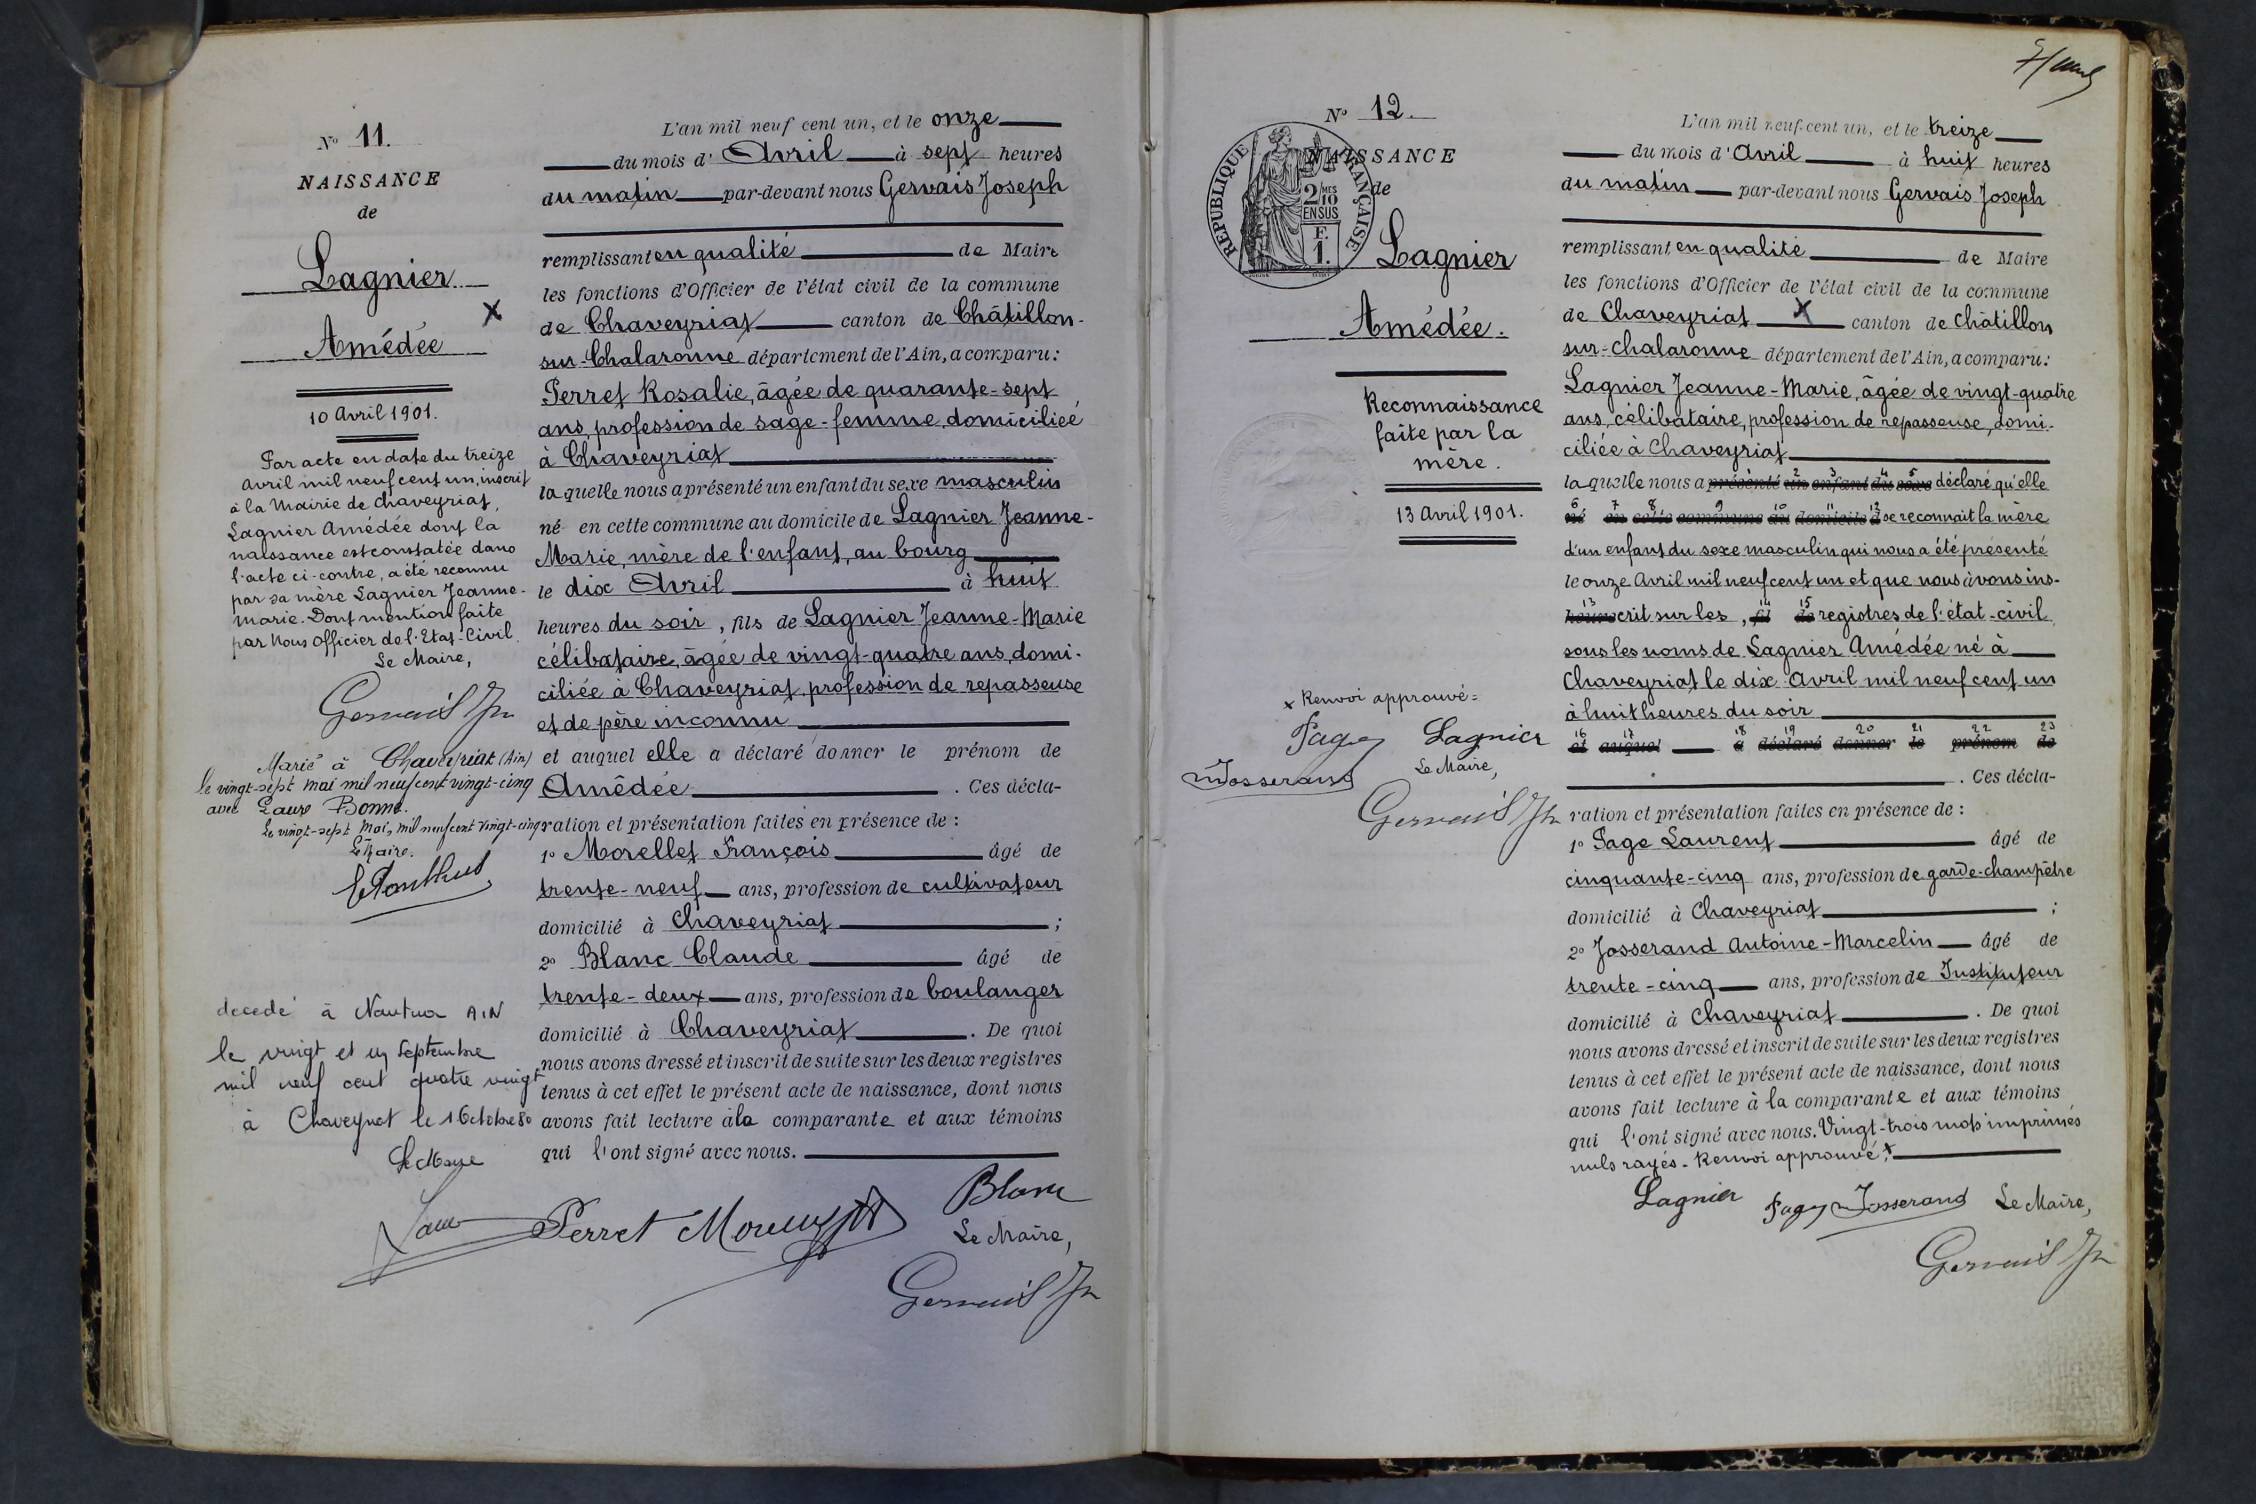 N° 11.
NAISSANCE
de
Lagnier
Amédée
X
10 Avril 1901.
Par acte en date du treize
avril mil neuf cent un, inscrit
à la Mairie de Chaveyriat,
Lagnier Amédée dont la
naissance est constatée dans
l'acte ci-contre, a été reconnu
par sa mère Lagnier Jeanne-
Marie. Dont mention faite
par Nous Officier de l'Etat-Civil.
Le Maire,
Gervais Jh
Marié à Chaveyriat (Ain)
le vingt-sept mai mil neuf cent vingt-cinq
avec Laure Bonne.
Le vingt-sept Mai, mil neuf cent vingt-cinq
Le Maire.
décédé à Nantua AIN
le vingt et un Septembre
mil neuf cent quatre vingt
à Chaveyriat le 1 Octobre 80
Le Maire
L'an mil neuf cent un, et le onze
du mois d'Avril à sept heures
du matin par-devant nous Gervais Joseph
remplissant en qualité de Maire
les fonctions d'Officier de l'état civil de la commune
de Chaveyriat canton de Châtillon-
sur-Chalaronne département de l'Ain, a comparu:
Perret Rosalie, âgée de quarante-sept
ans, profession de sage-femme, domiciliée
à Chaveyriat
laquelle nous a présenté un enfant du sexe masculin
né en cette commune au domicile de Lagnier Jeanne-
Marie, mère de l'enfant, au bourg
le dix Avril à huit
heures du soir, fils de Lagnier Jeanne-Marie
célibataire, âgée de vingt-quatre ans, domi-
ciliée à Chaveyriat, profession de repasseuse
et de père inconnu
et auquel elle a déclaré donner le prénom de
Amédée. Ces décla-
ration et présentation faites en présence de :
1° Morellet François âgé de
trente-neuf ans, profession de cultivateur
domicilié à Chaveyriat ;
2° Blanc Claude âgé de
trente-deux ans, profession de boulanger
domicilié à Chaveyriat. De quoi
nous avons dressé et inscrit de suite sur les deux registres
tenus à cet effet le présent acte de naissance, dont nous
avons fait lecture à la comparante et aux témoins
qui l'ont signé avec nous.
Perret Blanc
Le Maire,
Gervais Jh
N° 12.
RÉPUBLIQUE FRANÇAISE
2 MES
10
EN SUS
F.
1.
NAISSANCE
de
Lagnier
Amédée.
Reconnaissance
faite par la
mère.
13 Avril 1901.
x Renvoi approuvé=
Page Lagnier
Josserand Le Maire,
Gervais Jh
L'an mil neuf cent un, et le treize
du mois d'Avril à huit heures
du matin par-devant nous Gervais Joseph
remplissant en qualité de Maire
les fonctions d'Officier de l'état civil de la commune
de Chaveyriat X canton de Châtillon
sur-Chalaronne département de l'Ain, a comparu:
Lagnier Jeanne-Marie, âgée de vingt-quatre
ans, célibataire, profession de repasseuse, domi-
ciliée à Chaveyriat
2 3 4 5
laquelle nous a présenté un enfant du sexe déclaré qu'elle
6 7 8 9 10 11 12
né en cette commune au domicile d se reconnait la mère
d'un enfant du sexe masculin qui nous a été présenté
le onze Avril mil neuf cent un et que nous avons ins-
13 14 15
heures crit sur les, fil de registres de l'état-civil
sous les noms de Lagnier Amédée né à
Chaveyriat le dix Avril mil neuf cent un
à huit heures du soir
16 17 18 19 20 21 22 23
et auquel a déclaré donner le prénom de
. Ces décla-
ration et présentation faites en présence de :
1° Page Laurent âgé de
cinquante-cinq ans, profession de garde-champêtre
domicilié à Chaveyriat ;
2° Josserand Antoine-Marcelin âgé de
trente-cinq ans, profession de Instituteur
domicilié à Chaveyriat. De quoi
nous avons dressé et inscrit de suite sur les deux registres
tenus à cet effet le présent acte de naissance, dont nous
avons fait lecture à la comparante et aux témoins
qui l'ont signé avec nous. Vingt-trois mots imprimés
nuls rayés. Renvoi approuvé x
Lagnier Page Josserand Le Maire,
Gervais Jh